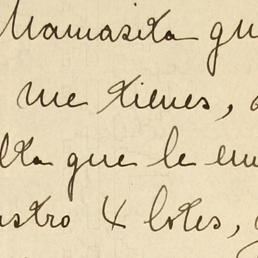 Mamasita qu
me tienes,
lta que le em
stro 4 lotes,